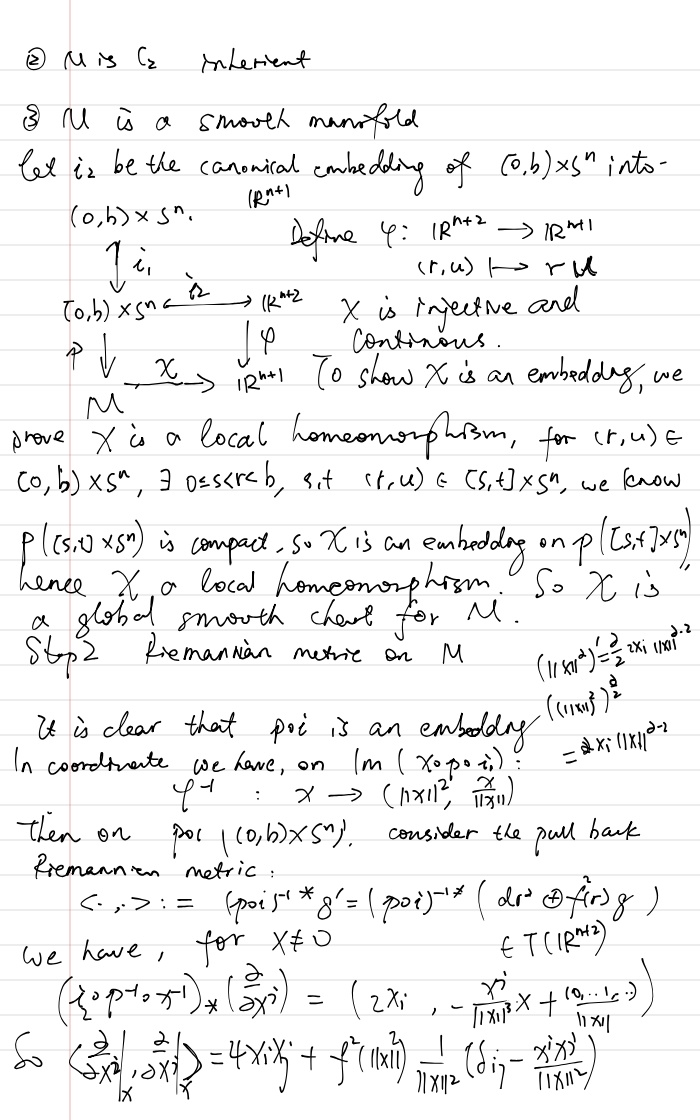 ② M is C₂ inherient
③ M is a smooth manifold
let i₂ be the canonical embedding of [0,b)×Sⁿ into
ℝⁿ⁺¹
(0,b)×Sⁿ. Define φ: ℝⁿ⁺² → ℝⁿ⁺¹
↕ i₁ (r,u) ↦ ru
[0,b)×Sⁿ ←i₂→ ℝⁿ⁺² χ is injective and
p ↓ ↓φ continous.
M —χ→ ℝⁿ⁺¹ To show χ is an embeddng, we
prove χ is a local homeomorphism, for (r,u) ∈
[0,b)×Sⁿ, ∃ 0≤s<r<b, s,t (r,u) ∈ [s,t]×Sⁿ, we know
p([s,t]×Sⁿ) is compact, so χ is an embeddng on p([s,t]×Sⁿ)
hence χ a local homeomorphism. So χ is
a global smooth chart for M.
Step2 Riemannian metric on M (||x||²)' = ∂/2 2xi ||x||^(∂-2)
((||x||²)^(∂/2)
It is clear that p∘i is an embeddng
= ∂xi||x||^(∂-2)
In coordinate we have, on Im(χ∘p∘i₁):
φ⁻¹ : x → (||x||², x/||x||)
Then on p∘i ((0,b)×Sⁿ), consider the pull back
Riemannian metric:
<·,·> := (p∘i)⁻¹* g' = (p∘i)⁻¹* (dr² ⊕ f²(r)g)
we have, for X≠0 ∈ T(ℝⁿ⁺²)
(i∘p⁻¹∘χ⁻¹)_*(∂/∂xⁱ) = (2xi, -xⁱ/||x||³ x + (0,..1,..)/||x||)
So <∂/∂xⁱ|_x, ∂/∂xʲ|_x> = 4xixj + f²(||x||²) 1/||x||² (δij - xⁱxʲ/||x||²)